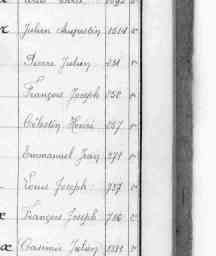 x Julien Augustin 1214 v
Pierre Julien 231 v
François Joseph 250 v
Célestin Henri 257 v
Emmanuel Jean 271 v
Louis Joseph 737 v
x François Joseph 716 v
x Casimir Julien